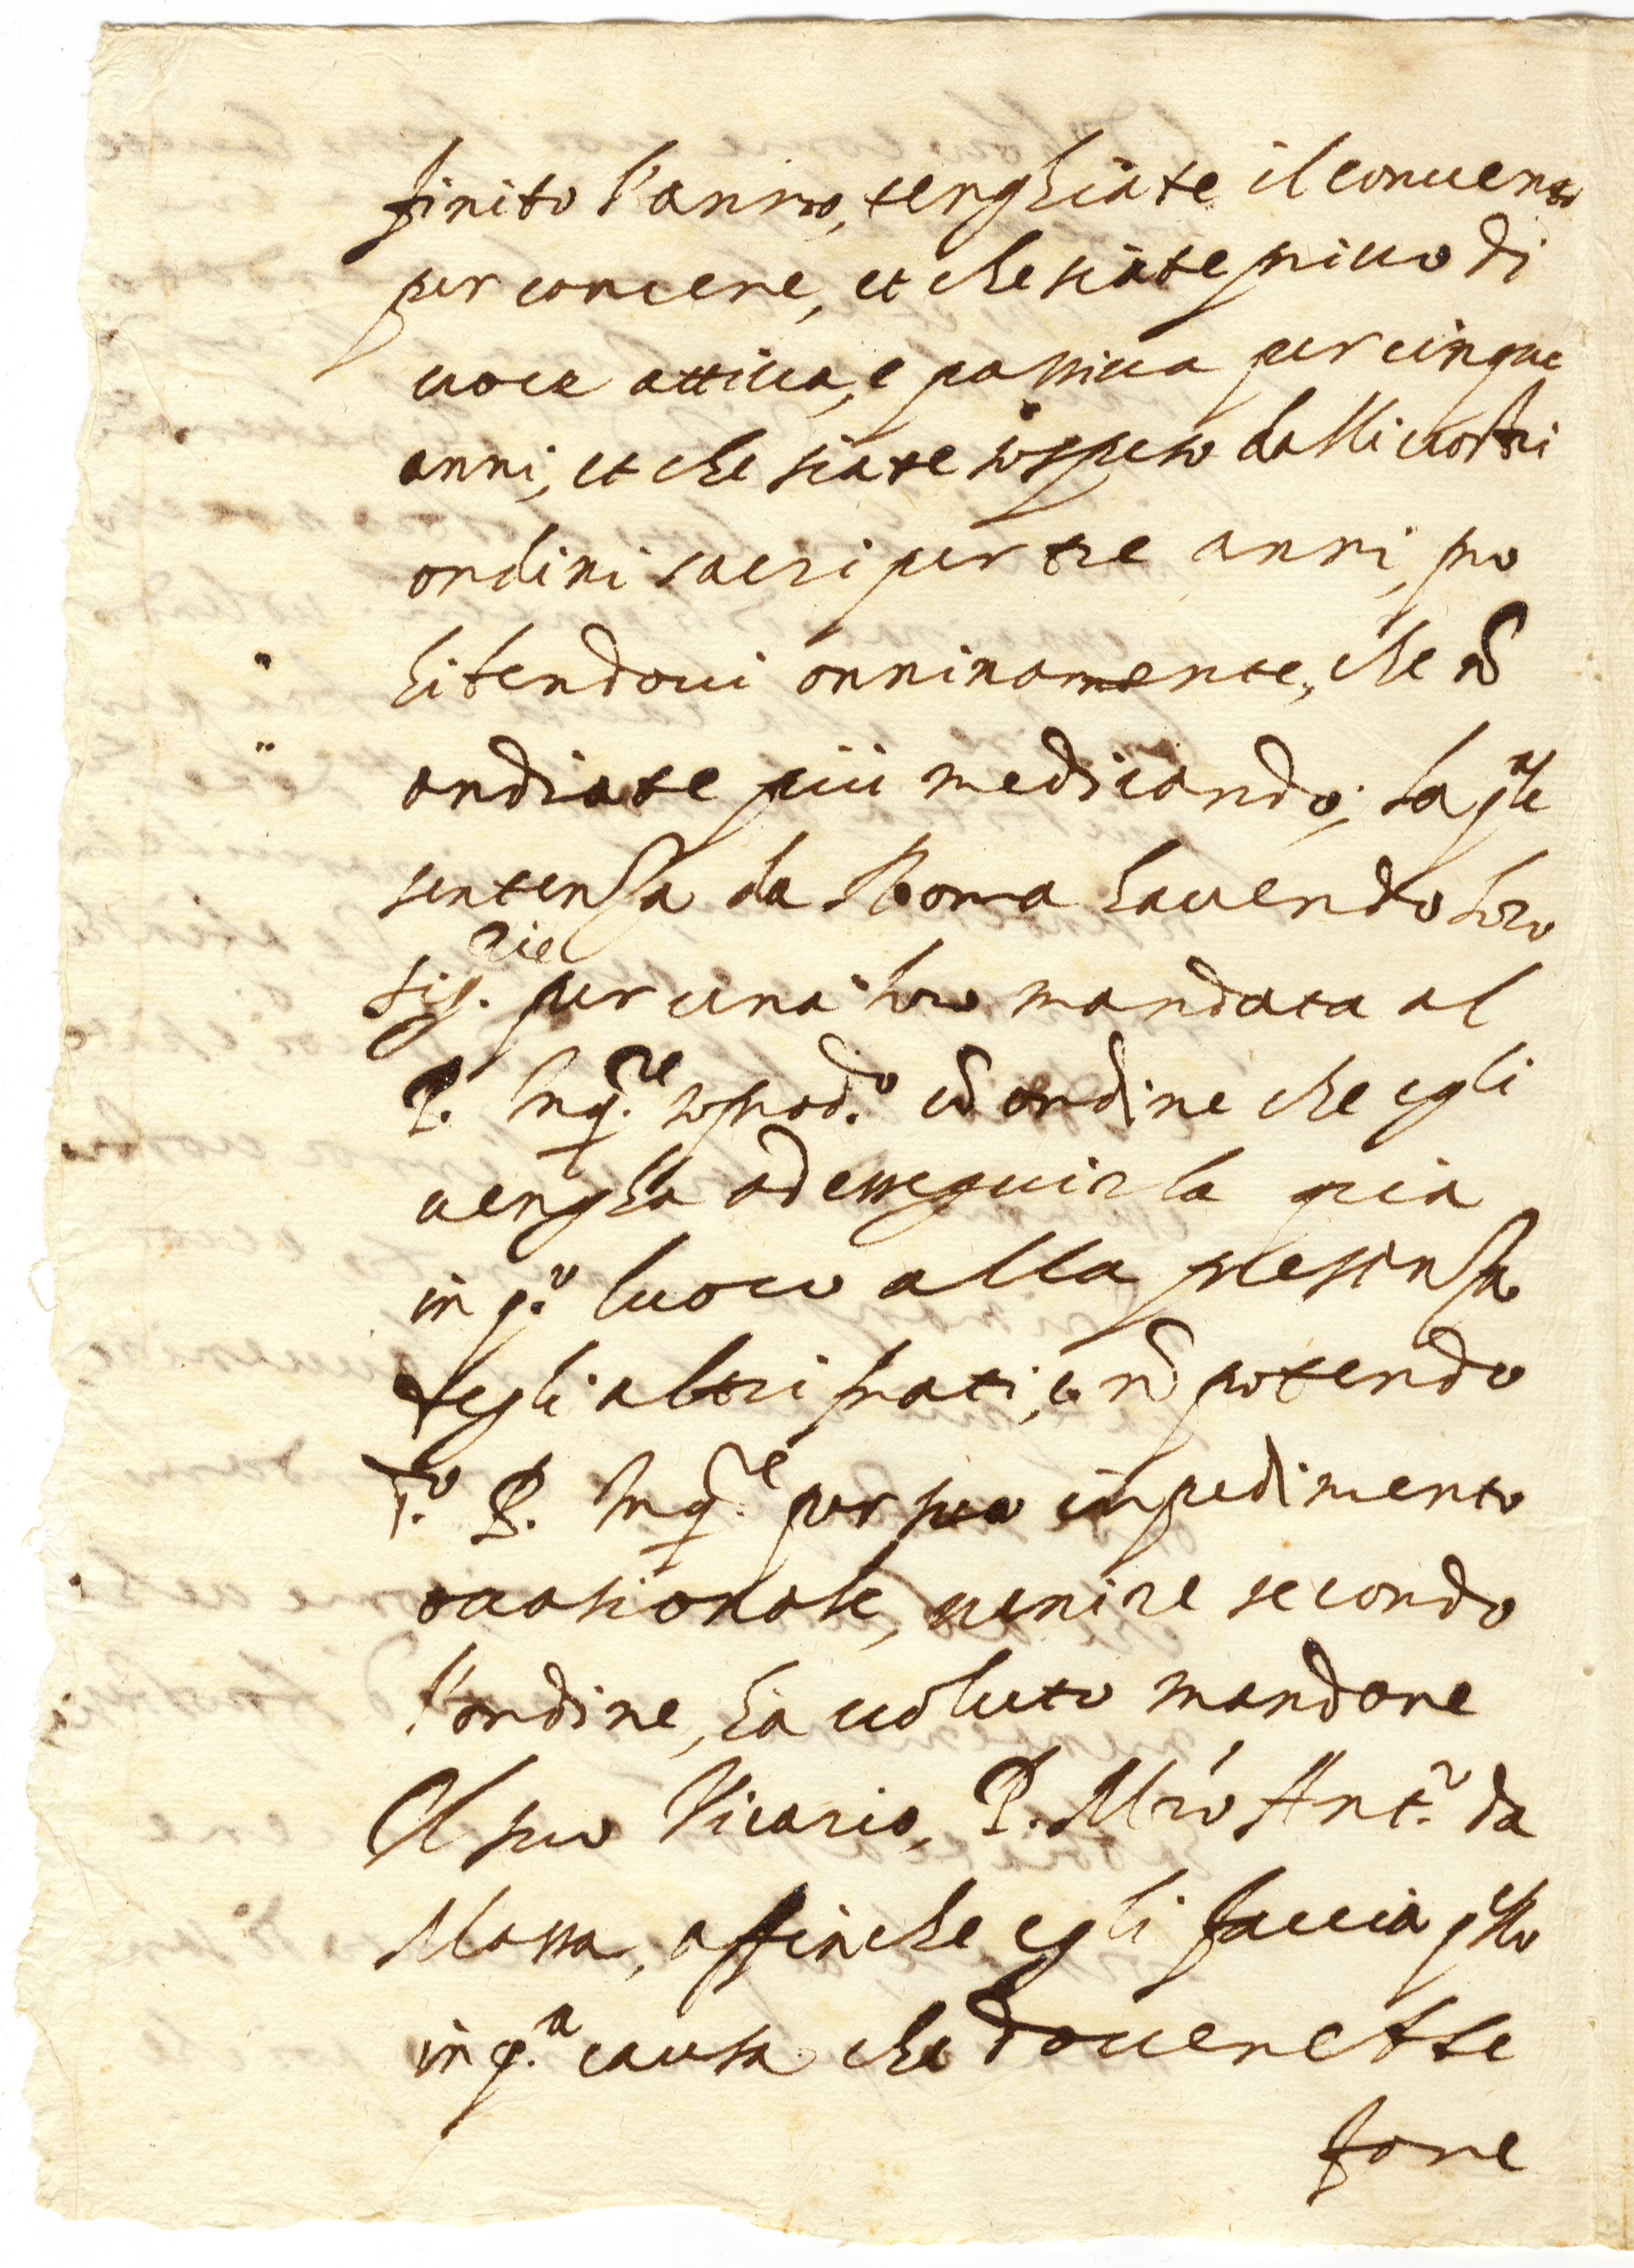 finito l'anno, tenghiate il conuento
per carcere, et che siate priuo di
uoce attiua, e passiua per cinque
anni, et che siate sospeso dalli uostri
ordini sacri per tre anni, pro
hibendoui onninamente, che nõ
andiate più medicando; la q.ale
sentenza da Roma hauendo loro
Sig.rie per una loro mandata al
P. Inq.re soprad.o cõ ordine che egli
uengha ad esseguirla quà
in q.o luoco alla presenza
degli altri frati, e nõ potendo
d.o P. Inq.re per suo impedimento
occasionale, uenire secondo
l'ordine, ha uoluto mandare
Il suo Vicario, P. Mro Ant.o da
Massa, affinche egli faccia q.llo
in q.a causa che douerebbe
fare